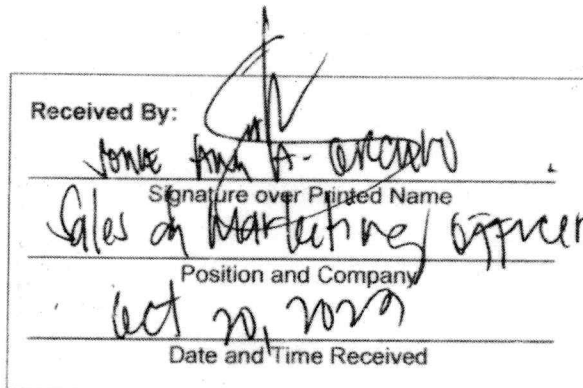 Received By:
Ann A.
Signature over Printed Name
Sales & Marketing Officer
Position and Company
Oct 20,
Date and Time Received